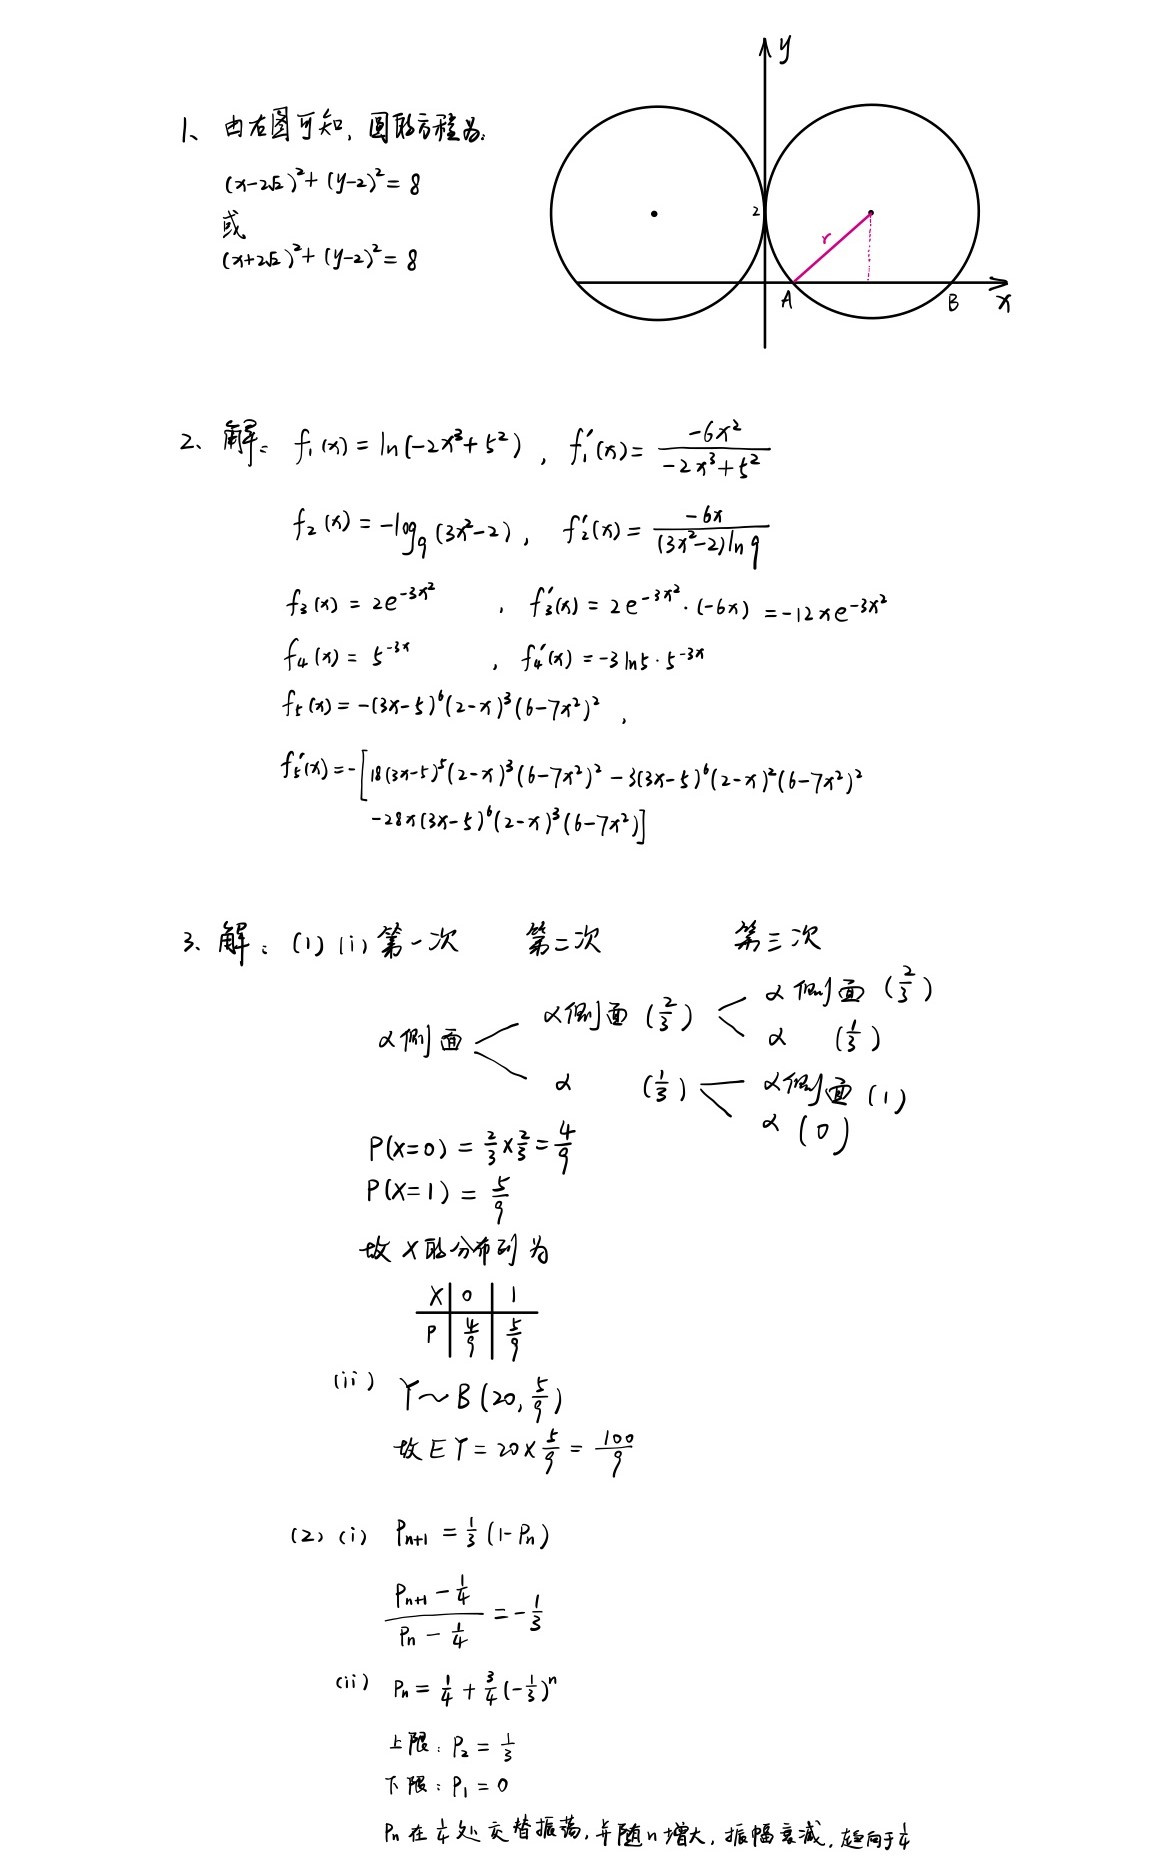 1、由右图可知，圆的方程为：
(x-2√2)²+(y-2)²=8
或
(x+2√2)²+(y-2)²=8
y
2
r
A
B
x
2、解： f₁(x)=ln(-2x³+5²)，f₁′(x)=\frac{-6x²}{-2x³+5²}
f₂(x)=-log₉(3x²-2)，f₂′(x)=\frac{-6x}{(3x²-2)ln9}
f₃(x)=2e^{-3x²}，f₃′(x)=2e^{-3x²}·(-6x)=-12xe^{-3x²}
f₄(x)=5^{-3x}，f₄′(x)=-3ln5·5^{-3x}
f₅(x)=-(3x-5)⁶(2-x)³(6-7x²)²，
f₅′(x)=-[18(3x-5)⁵(2-x)³(6-7x²)²-3(3x-5)⁶(2-x)²(6-7x²)²
-28x(3x-5)⁶(2-x)³(6-7x²)]
3、解：(1)(i)第一次 第二次 第三次
α侧面 (2/3)
α侧面 (2/3)
α (1/3)
α侧面
α (1/3)
α侧面 (1)
α (0)
P(X=0)=2/3×2/3=4/9
P(X=1)=5/9
故X的分布列为
X 0 1
P 4/9 5/9
(ii) Y～B(20,5/9)
故EY=20×5/9=100/9
(2)(i) Pₙ₊₁=1/3(1-Pₙ)
\frac{Pₙ₊₁-1/4}{Pₙ-1/4}=-1/3
(ii) Pₙ=1/4+3/4(-1/3)ⁿ
上限：P₂=1/3
下限：P₁=0
Pₙ在1/4处交替振荡，并随n增大，振幅衰减，趋向于1/4